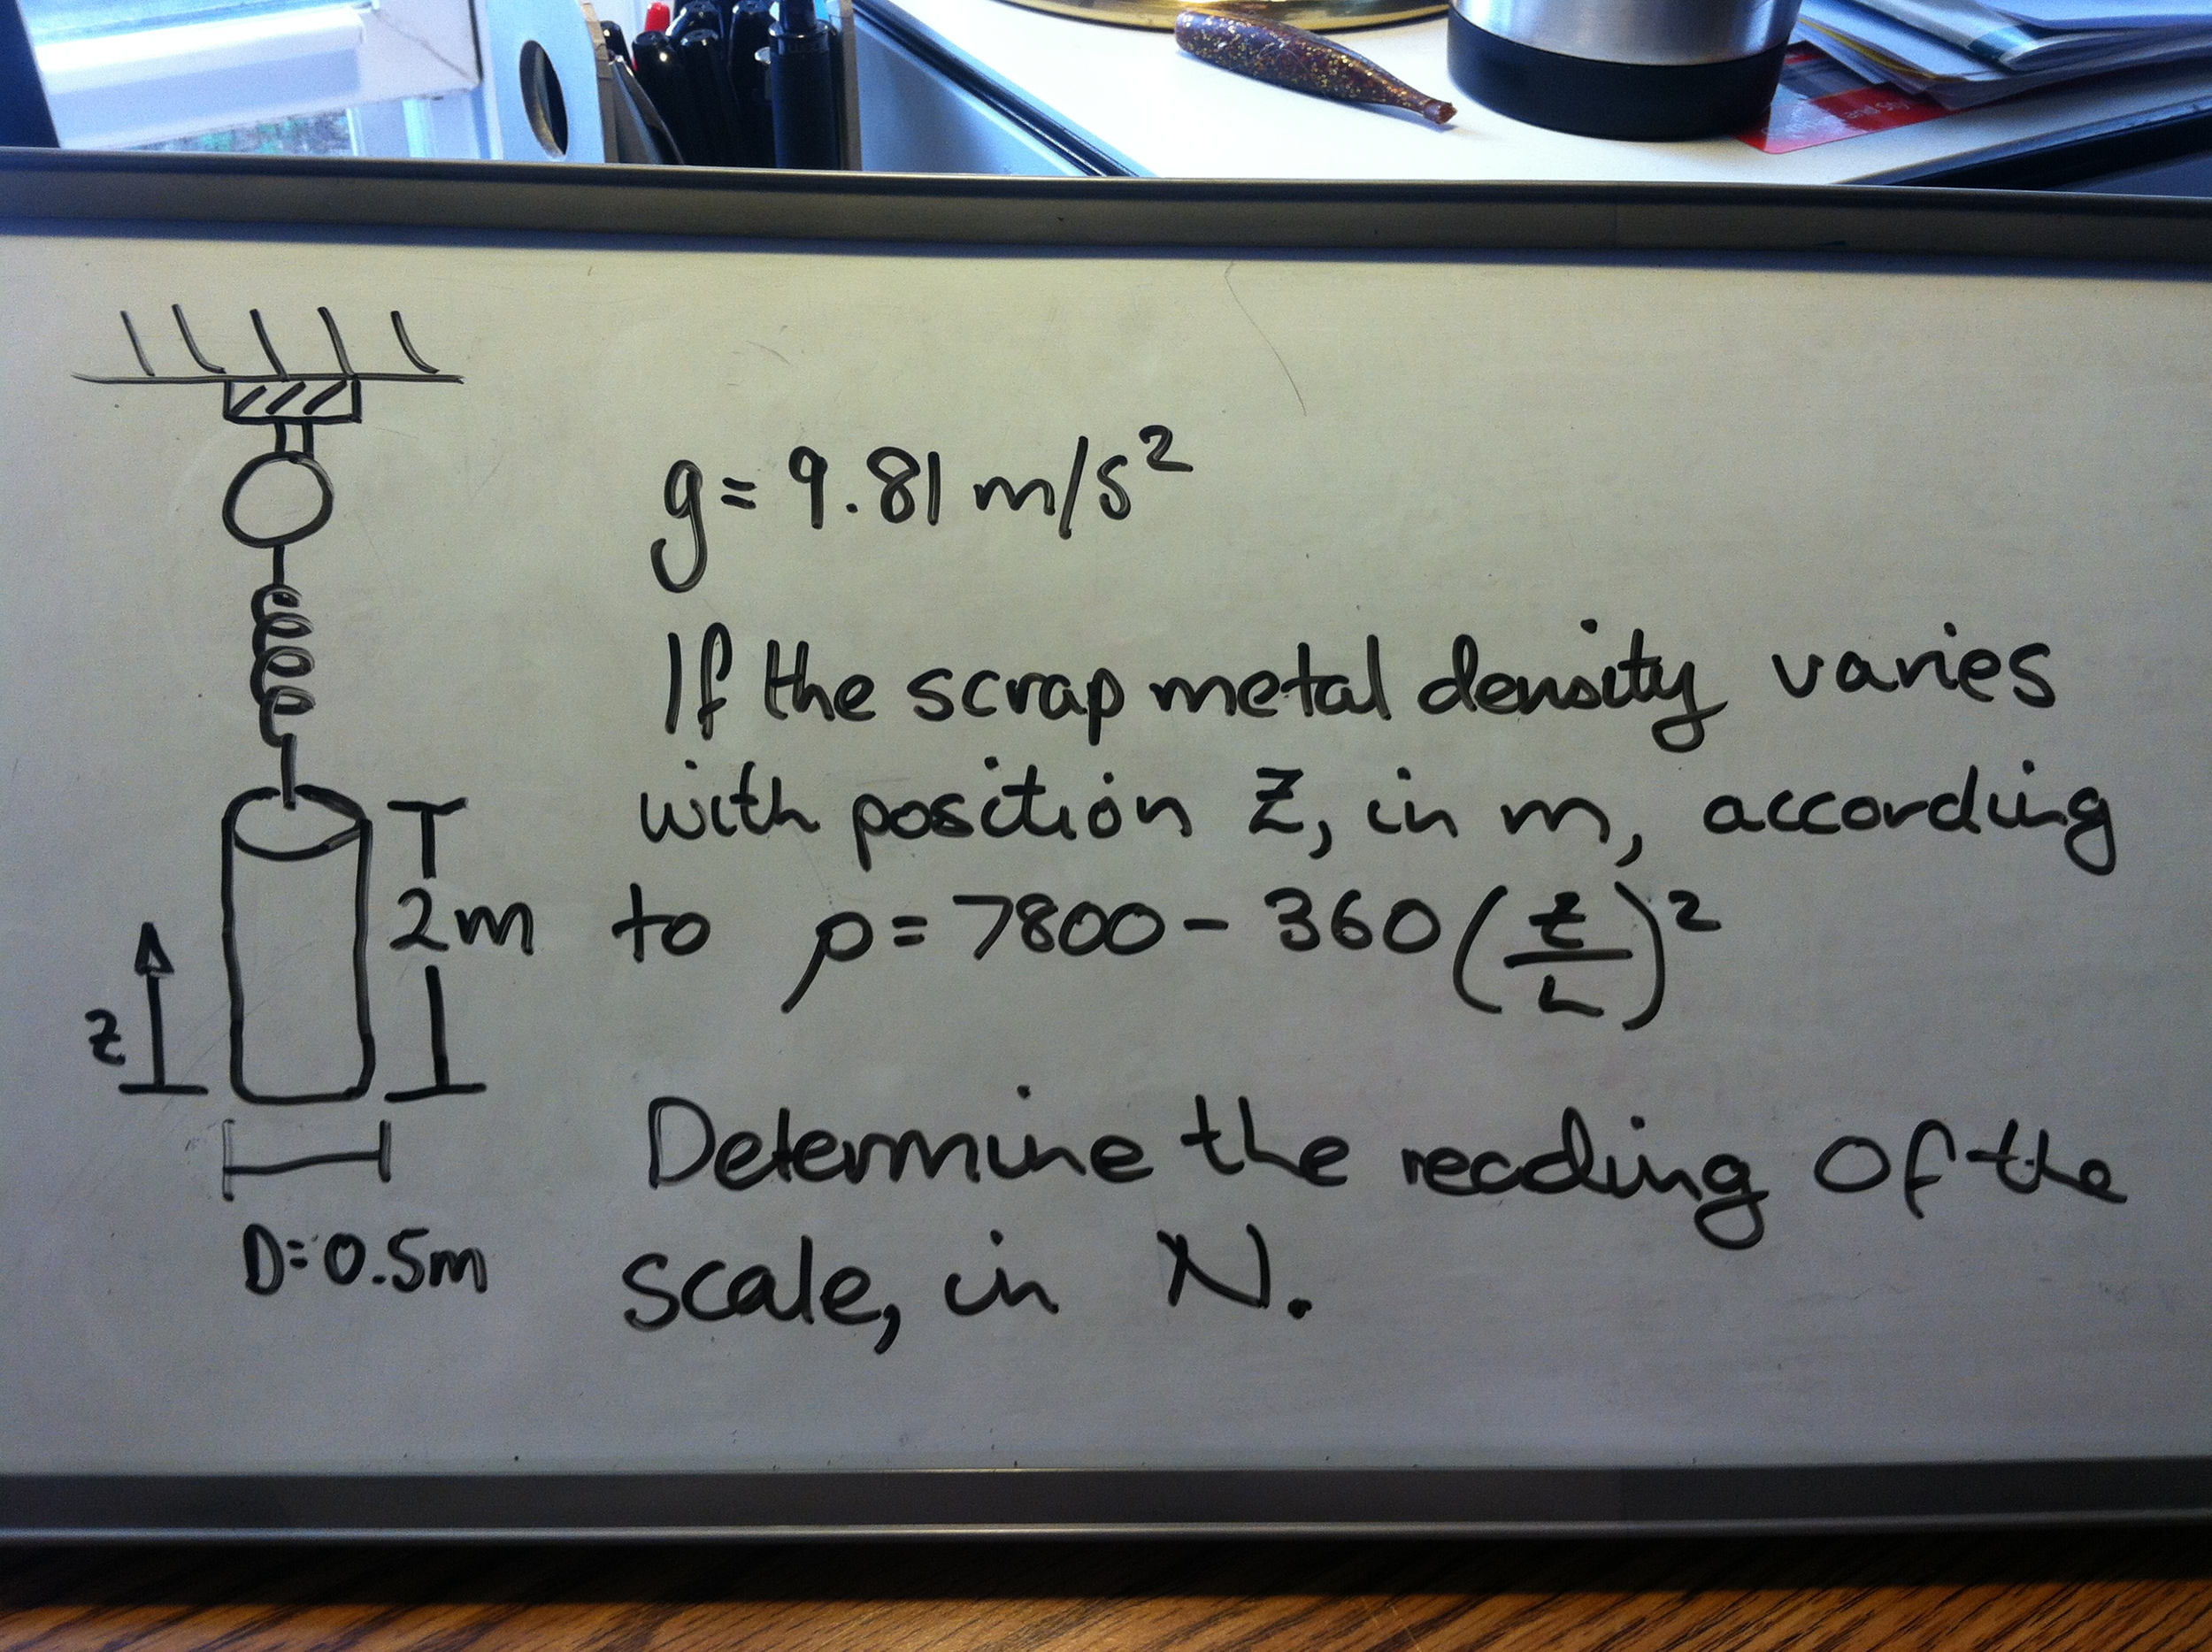 g = 9.81 m/s²
If the scrap metal density varies
with position z, in m, according
2m
to ρ = 7800 - 360 (z/L)²
z
Determine the reading of the
D = 0.5m
scale, in N.